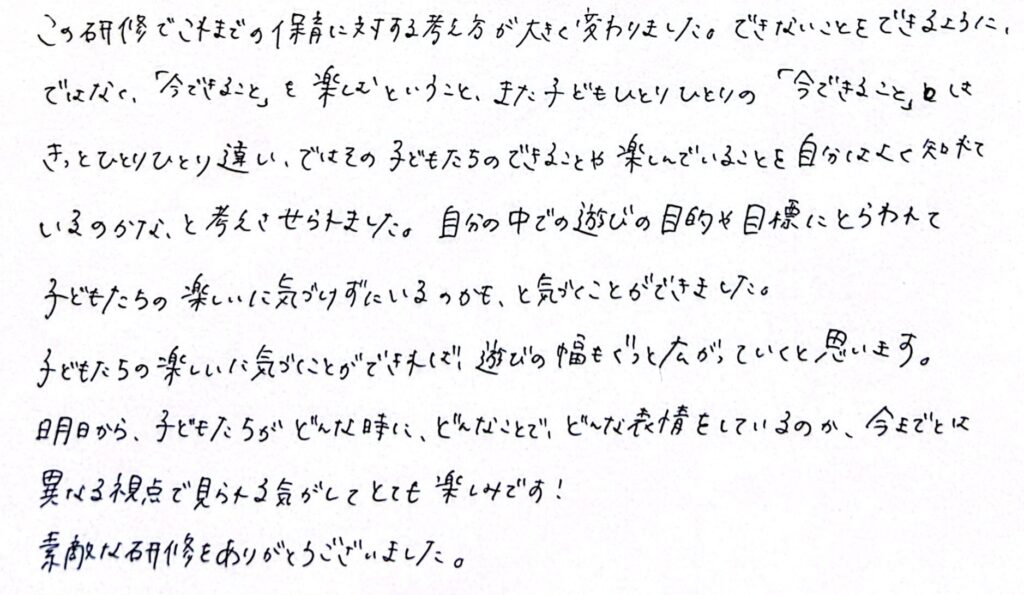 この研修でこれまでの保育に対する考え方が大きく変わりました。できないことをできるように、
ではなく、「今できること」を楽しむということ、また子どもひとりひとりの「今できること」とは
きっとひとりひとり違い、ではその子どもたちのできることや楽しんでいることを自分はよく知れて
いるのかな、と考えさせられました。自分の中での遊びの目的や目標にとらわれて
子どもたちの楽しいに気づけずにいるのかも、と気がつくことができました。
子どもたちの楽しいに気づくことができれば、遊びの幅もぐっと広がっていくと思います。
明日から、子どもたちがどんな時に、どんなことで、どんな表情をしているのか、今までとは
異なる視点で見られる気がしてとても楽しみです!
素敵な研修をありがとうございました。